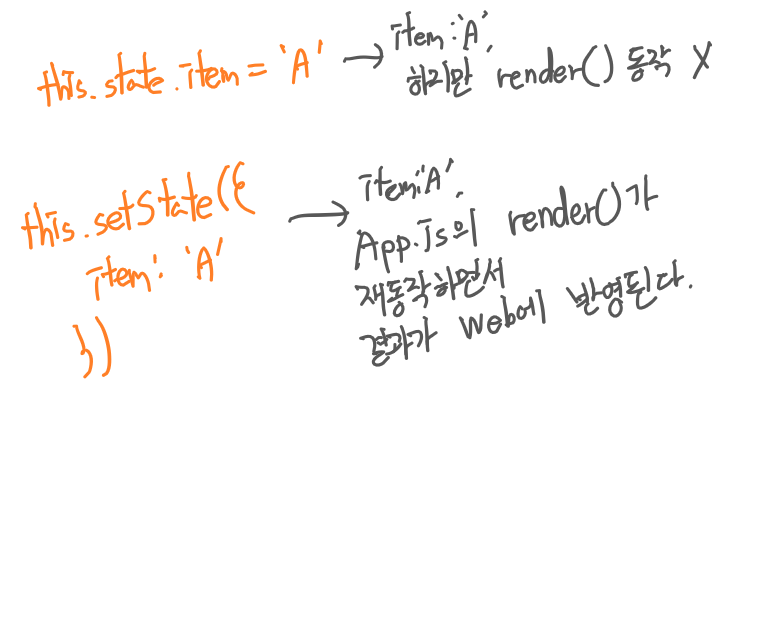 this.state.item = 'A' → item:'A',
하지만 render() 동작 X
this.setState({
item: 'A'
})
→ item:'A',
App.js의 render()가
재동작하면서
결과가 Web에 반영된다.